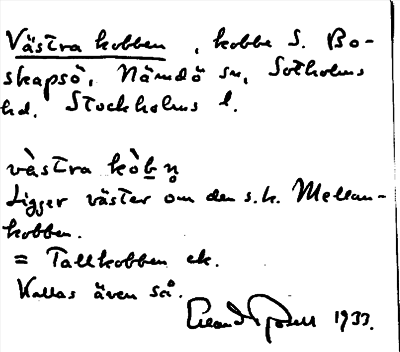 Västra kobben, kobbe S. Bo-
skapsö, Nämdö sn, Sotholms
hd. Stockholms l.
västra kòbn̥
Ligger väster om den s.k. Mellan-
kobben.
= Tallkobben ek.
Kallas även så.
Erland Rosell 1933.